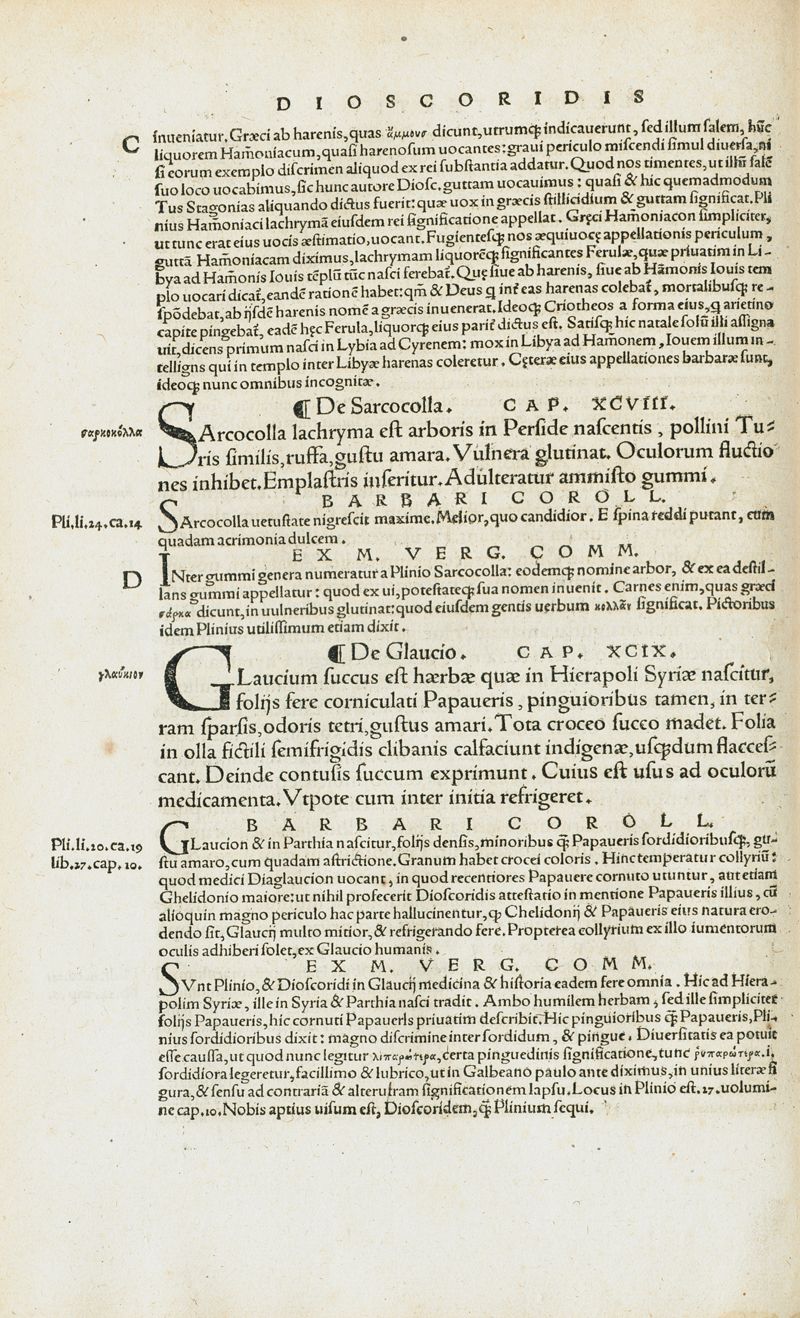 DIOSCORIDIS
C
inueniatur. Græci ab harenis, quas ἄμμουσ dicunt, utrumq; indicauerunt, sed illum salem, hūc
liquorem Ham̄oniacum, quasi harenosum uocantes: graui periculo miscendi simul diuersa, ni
si eorum exemplo discrimen aliquod ex rei substantia addatur. Quod nos timentes, ut illū salē
suo loco uocabimus, sic hunc autore Diosc. guttam uocauimus: quasi & hic quemadmodum
Tus Stagonias aliquando dictus fuerit: quæ uox in græcis stillicidium & guttam significat. Pli
nius Ham̄oniaci lachrymā eiusdem rei significatione appellat. Gręci Ham̄oniacon simpliciter,
ut tunc erat eius uocis æstimatio, uocant. Fugientesq; nos æquiuocę appellationis periculum,
guttā Ham̄oniacam diximus, lachrymam liquorēq; significantes Ferulæ, quæ priuatim in Li-
bya ad Ham̄onis Iouis tēplū tūc nasci ferebat̄. Quę siue ab harenis, siue ab Ham̄onis Iouis tem
plo uocari dicat̄, eandē rationē habet: qm̄ & Deus q int̄ eas harenas colebat̄, mortalibusq; re-
spōdebat, ab ijsdē harenis nomē a græcis inuenerat. Ideoq; Criotheos a forma eius, q arietino
capite pingebat̄, eadē hęc Ferula, liquorq; eius parit̄ dictus est. Satisq; hic natale solū illi assigna
uit, dicens primum nasci in Lybia ad Cyrenem: mox in Libya ad Hamonem, Iouem illum in-
telligns qui in templo inter Libyæ harenas coleretur. Cęteræ eius appellationes barbaræ sunt,
ideoq; nunc omnibus incognitæ.
¶ De Sarcocolla. CAP. XCVIII.
σαρκοκόλλα
SArcocolla lachryma est arboris in Perside nascentis, pollini Tu-
ris similis, ruffa, gustu amara. Vulnera glutinat. Oculorum fluctio
nes inhibet. Emplastris inseritur. Adulteratur ammisto gummi.
BARBARI COROLL.
Pli. li. 24. ca. 14
SArcocolla uetustate nigrescit maxime. Melior, quo candidior. E spina reddi putant, cum
quadam acrimonia dulcem.
EX M. VERG. COMM.
D
INter gummi genera numeratur a Plinio Sarcocolla: eodemq; nomine arbor, & ex ea destil-
lans gummi appellatur: quod ex ui, potestateq; sua nomen inuenit. Carnes enim, quas græci
σάρκα dicunt, in uulneribus glutinat: quod eiusdem gentis uerbum κολλᾶν significat. Pictoribus
idem Plinius utilissimum etiam dixit.
¶ De Glaucio. CAP. XCIX.
γλαύκιον
GLaucium succus est hærbæ quæ in Hierapoli Syriæ nascitur,
folijs fere corniculati Papaueris, pinguioribus tamen, in ter-
ram sparsis, odoris tetri, gustus amari. Tota croceo succo madet. Folia
in olla fictili semifrigidis clibanis calfaciunt indigenæ, usq;dum flacces-
cant. Deinde contusis succum exprimunt. Cuius est usus ad oculorū
medicamenta. Vtpote cum inter initia refrigeret.
BARBARI COROLL.
Pli. li. 20. ca. 19
lib. 27. cap. 10.
GLaucion & in Parthia nascitur, folijs densis, minoribus q̄ Papaueris sordidioribusq;, gu-
stu amaro, cum quadam astrictione. Granum habet crocei coloris. Hinc temperatur collyriū:
quod medici Diaglaucion uocant, in quod recentiores Papauere cornuto utuntur, aut etiam
Ghelidonio maiore: ut nihil profecerit Dioscoridis attestatio in mentione Papaueris illius, cū
alioquin magno periculo hac parte hallucinentur, q; Chelidonij & Papaueris eius natura ero-
dendo sit, Glaucij multo mitior, & refrigerando fere. Propterea collyrium ex illo iumentorum
oculis adhiberi solet, ex Glaucio humanis.
EX M. VERG. COMM.
SVnt Plinio, & Dioscoridi in Glaucij medicina & historia eadem fere omnia. Hic ad Hiera-
polim Syriæ, ille in Syria & Parthia nasci tradit. Ambo humilem herbam, sed ille simpliciter
folijs Papaueris, hic cornuti Papaueris priuatim describit. Hic pinguioribus q̄ Papaueris, Pli-
nius sordidioribus dixit: magno discrimine inter sordidum, & pingue. Diuersitatis ea potuit
esse caussa, ut quod nunc legitur λιπαρώτερα, certa pinguedinis significatione, tunc ῥυπαρώτερα .i.
sordidiora legeretur, facillimo & lubrico, ut in Galbeano paulo ante diximus, in unius literæ fi
gura, & sensu ad contrariā & alterutram significationem lapsu. Locus in Plinio est. 27. uolumi-
ne cap. 10. Nobis aptius uisum est, Dioscoridem, q̄ Plinium sequi.